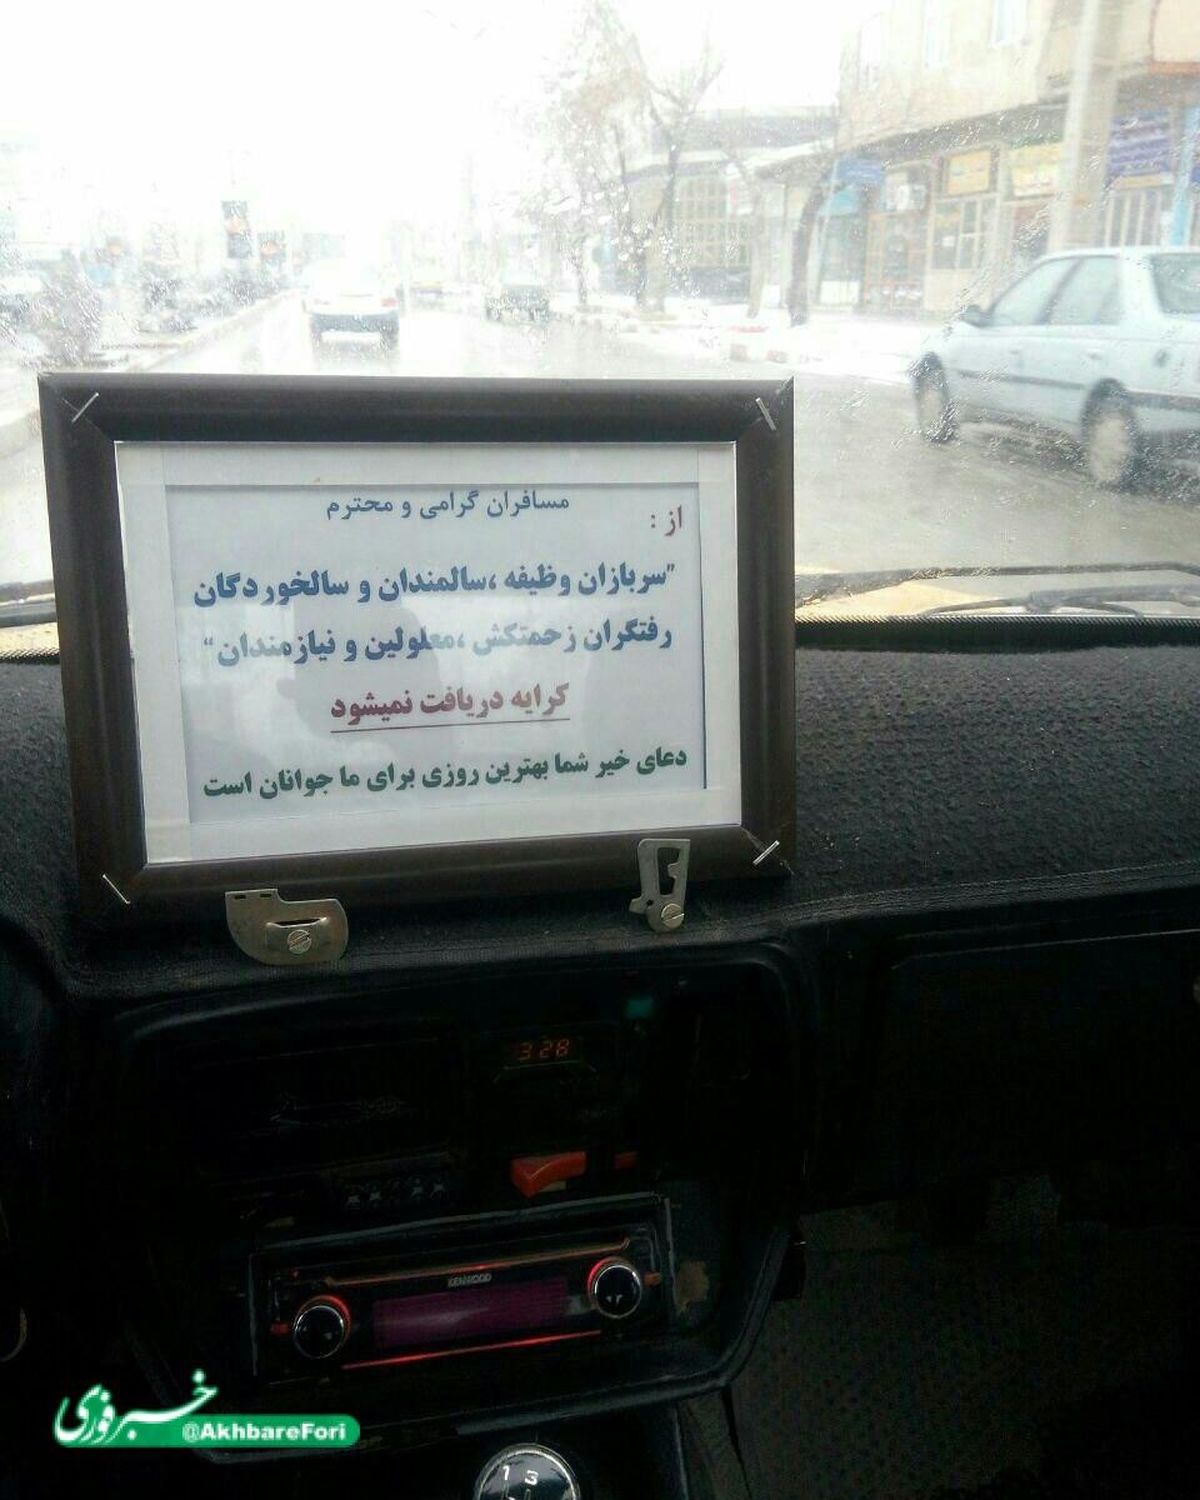 مسافران گرامی و محترم
از :
"سربازان وظیفه ،سالمندان و سالخوردگان
رفتگران زحمتکش ،معلولین و نیازمندان"
کرایه دریافت نمیشود
دعای خیر شما بهترین روزی برای ما جوانان است
3:28
KENWOOD
خبرفوری
@AkhbareFori
1 3